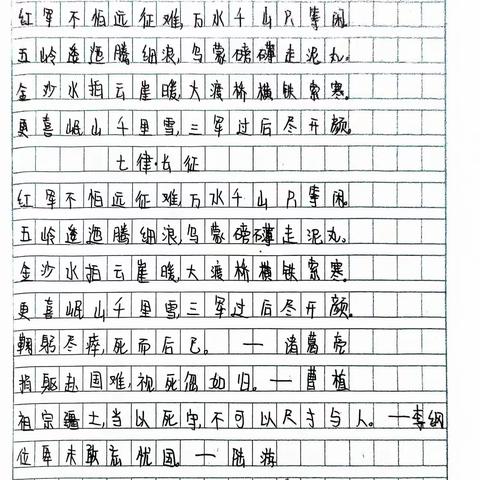 红军不怕远征难,万水千山只等闲。
五岭逶迤腾细浪,乌蒙磅礴走泥丸。
金沙水拍云崖暖,大渡桥横铁索寒。
更喜岷山千里雪,三军过后尽开颜。
七律·长征
红军不怕远征难,万水千山只等闲。
五岭逶迤腾细浪,乌蒙磅礴走泥丸。
金沙水拍云崖暖,大渡桥横铁索寒。
更喜岷山千里雪,三军过后尽开颜。
鞠躬尽瘁,死而后已。——诸葛亮
捐躯赴国难,视死忽如归。——曹植
祖宗疆土,当以死守,不可以尺寸与人。——李纲
位卑未敢忘忧国。——陆游